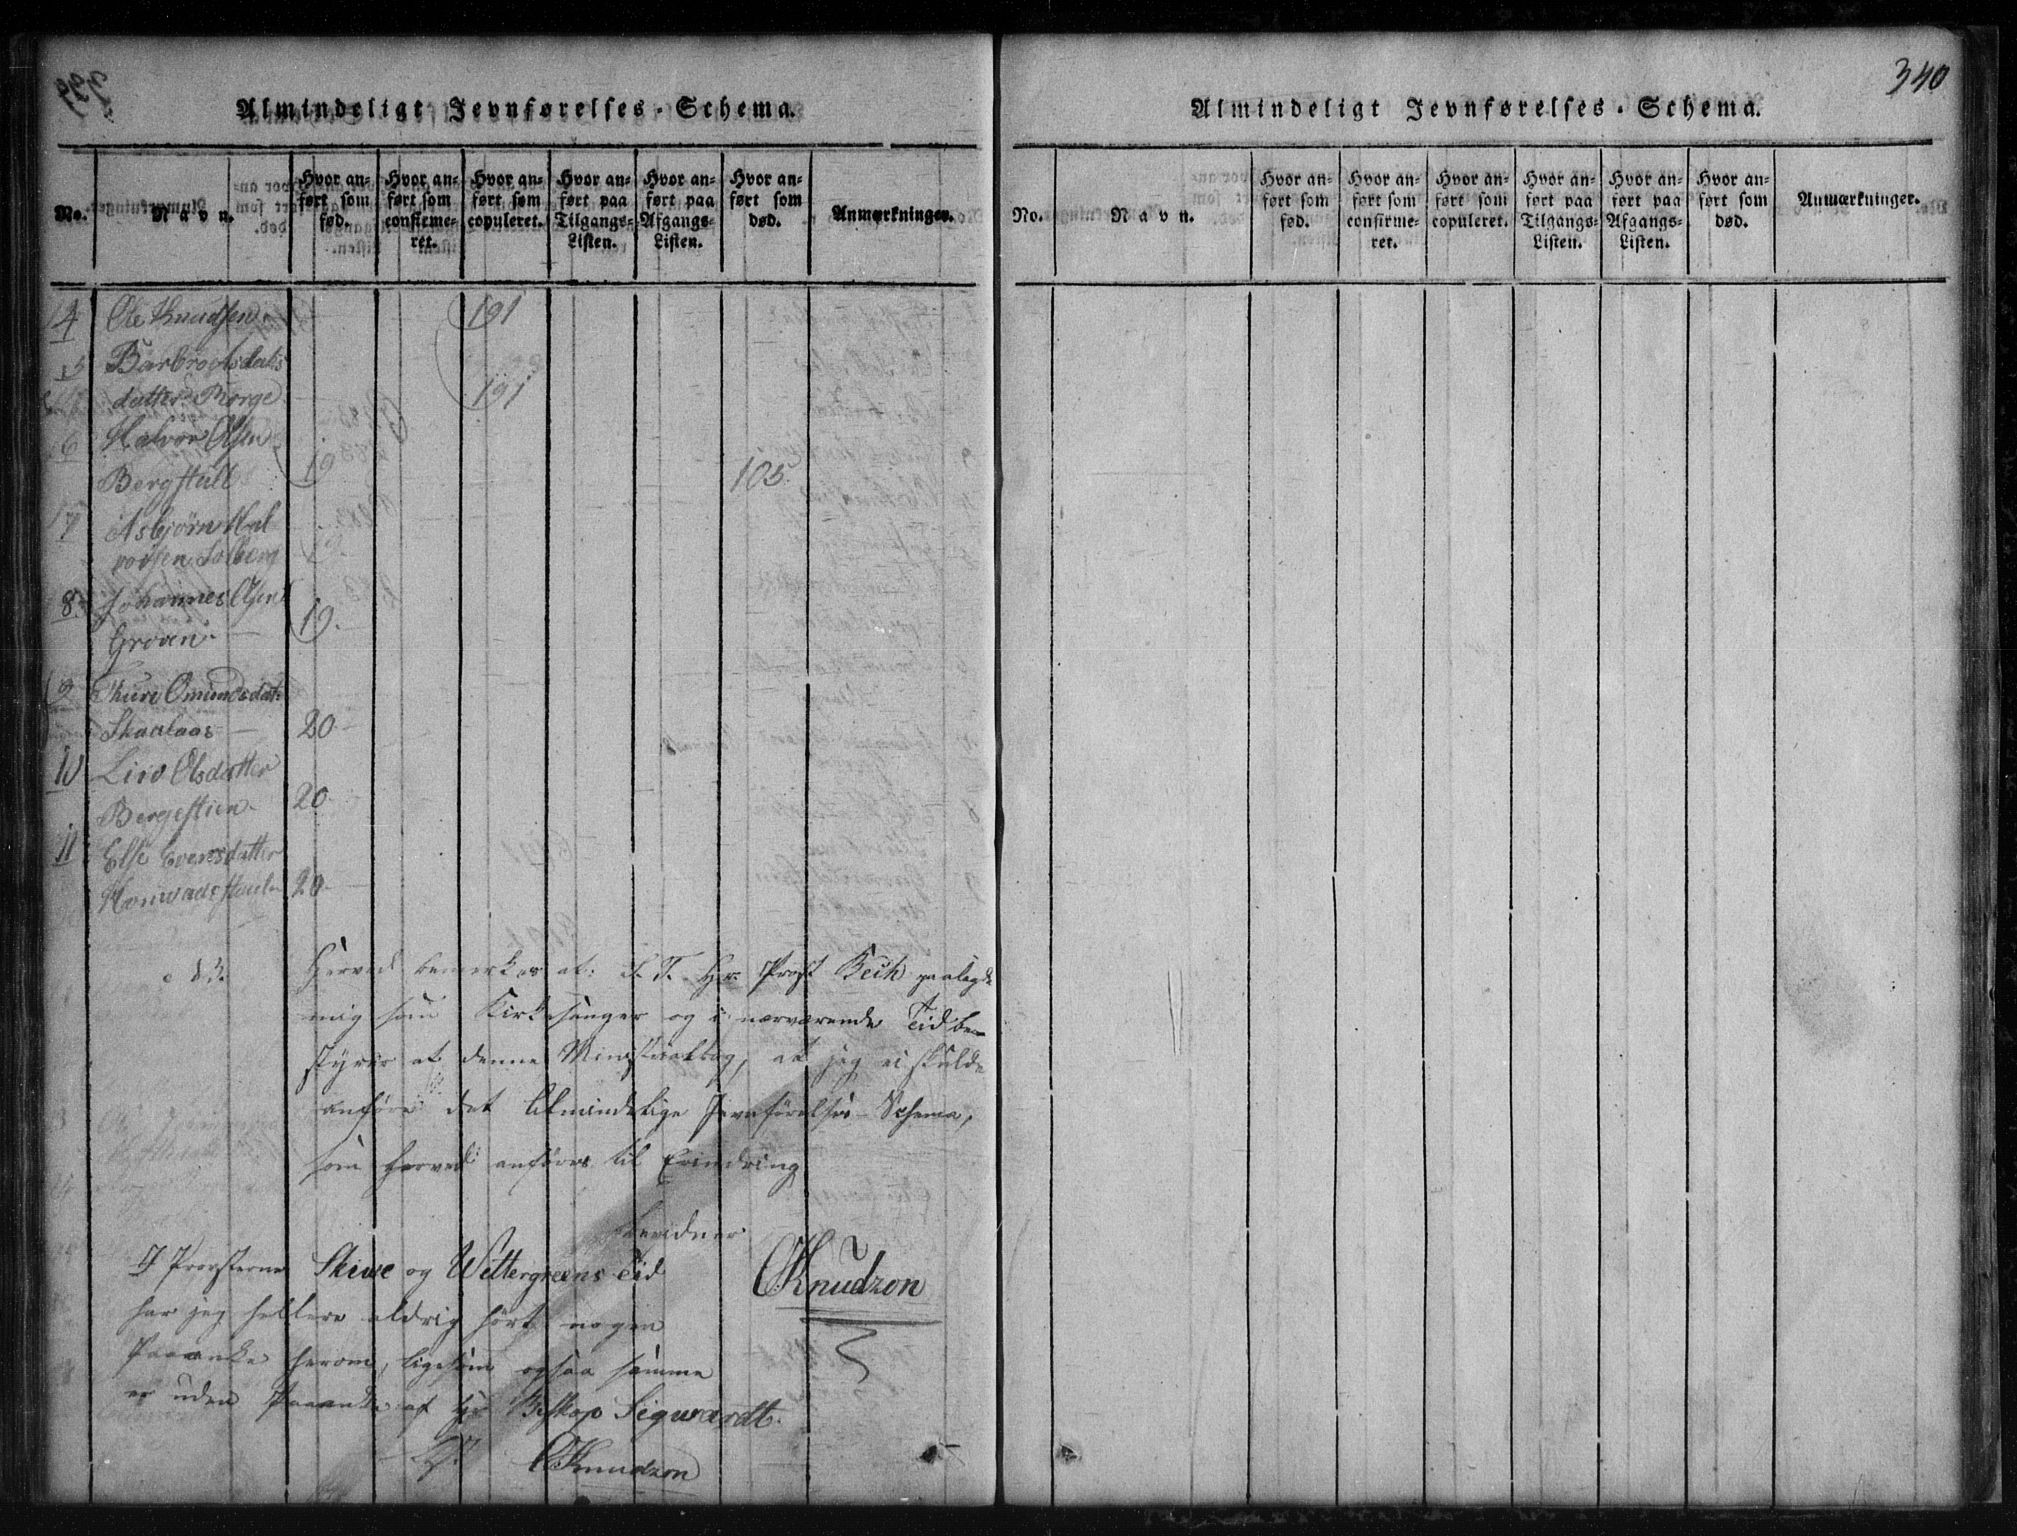 Almindeligt Jevnførelses-Schema.
No.
Navn.
Hvor anført som fød.
Hvor anført som confirmeret.
Hvor anført som copuleret.
Hvor anført paa Tilgangs-Listen.
Hvor anført paa Afgangs-Listen.
Hvor anført som død.
Anmærkninger.
4 Ole Knudsen 191
5 Barbro Asdals
datter Borge 191
6 Halvor Olsen
Bergstull 19 105
7 Asbjørn Hal
vorsen Solberg 19
8 Johannes Olsen
Groven 19
9 Thure Omundsdat
Skaalaas 20
10 Live Olsdatter
Bergestien 20
11 Else Evensdatter
20
Herved bemerkes at: S. T. Hr. Provst Bech paalagde
mig som Kirkesanger og i nærværende Tid be-
styrer af denne Ministerialbog, at jeg ei skulde
anføre det Almindelige Jevnførelses-Schema,
som herved anføres til Erindring
I Provsterne Skive og Wettergreens Tid
har jeg hellere aldrig hørt nogen
Paaanke herom, ligesom ogsaa samme
er uden Paaanke af Hr Biskop Sigwardt.
OKnudzon
OKnudzon
340
Almindeligt Jevnførelses-Schema.
No.
Navn.
Hvor anført som fød.
Hvor anført som confirmeret.
Hvor anført som copuleret.
Hvor anført paa Tilgangs-Listen.
Hvor anført paa Afgangs-Listen.
Hvor anført som død.
Anmærkninger.